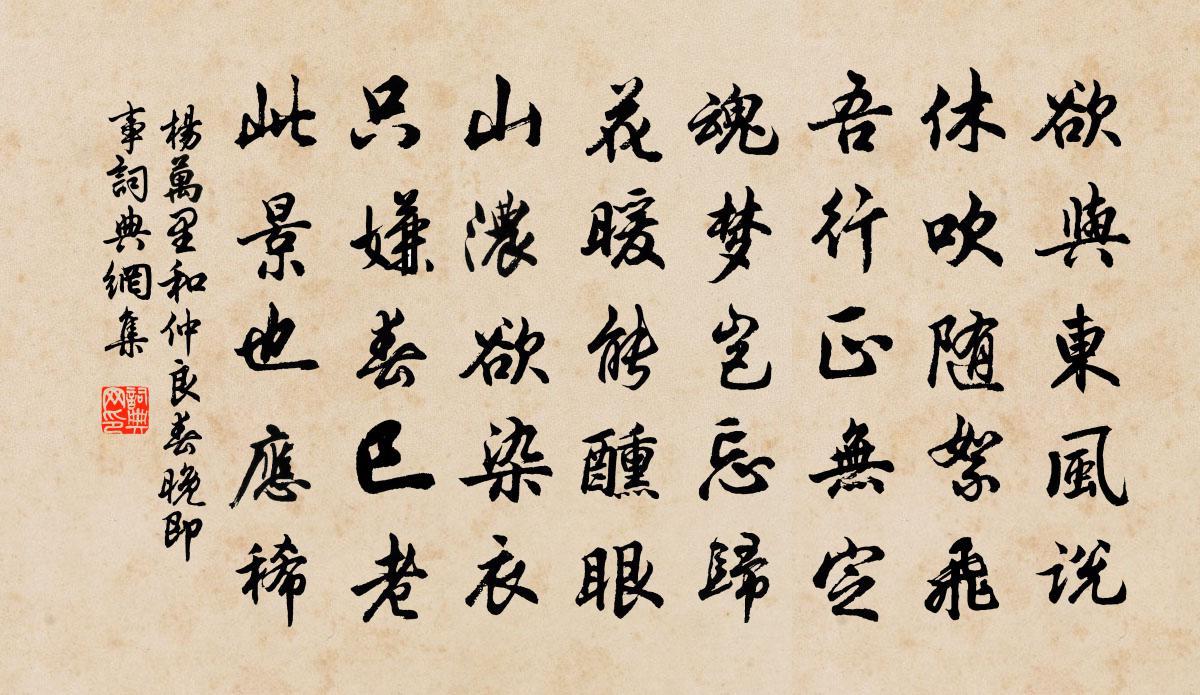 欲與東風説
休吹随絮飛
吾行正無定
魂梦豈忘歸
花暖能醺眼
山濃欲染衣
只嫌春已老
此景也應稀
楊萬里和仲良春晚即
事詞典網集
詞典
网印